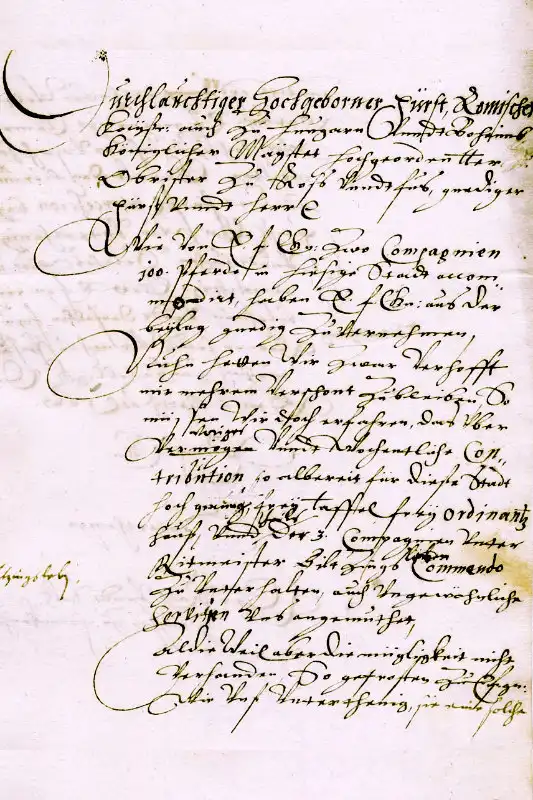 Durchlauchtiger Hochgeborner Fürst, Römischer
Keyser: auch Zu Hungarn Vnndt Boheimb
Königlicher Mayster hochgeordentter
Obrister Zu Ross Vnndt fus, gnediger
Fürst Vnndt Herr
Wie Von E f Gn: Zwo Compagnien
100 Pferde in hiesige Stadt accom
modirt, haben E f Gn: aus der
beylag gnedig Zu Vernehmen,
Nuhn hetten Wir Zwar Verhofft
nur mehrern Verschont Zubleiben, So
müssen Wir doch erfahren, das Vber
Vermögen Vnndt Wochentliche Con,,
tribution, so albereit für diese Stadt
hoch frey taffel frey ordinantz
haus, Vnnd der 3. Compagnien Vnter
Ritmeister Commando
Zu Vnterhalten, auch Vngewöhnliche
Servitien Vns angemuthet,
Aldie Weil aber die mügligkeit nicht
Verhanden, So getrösten Zu E f gn:
Wir Vns Vnterthenig, sie eine solche